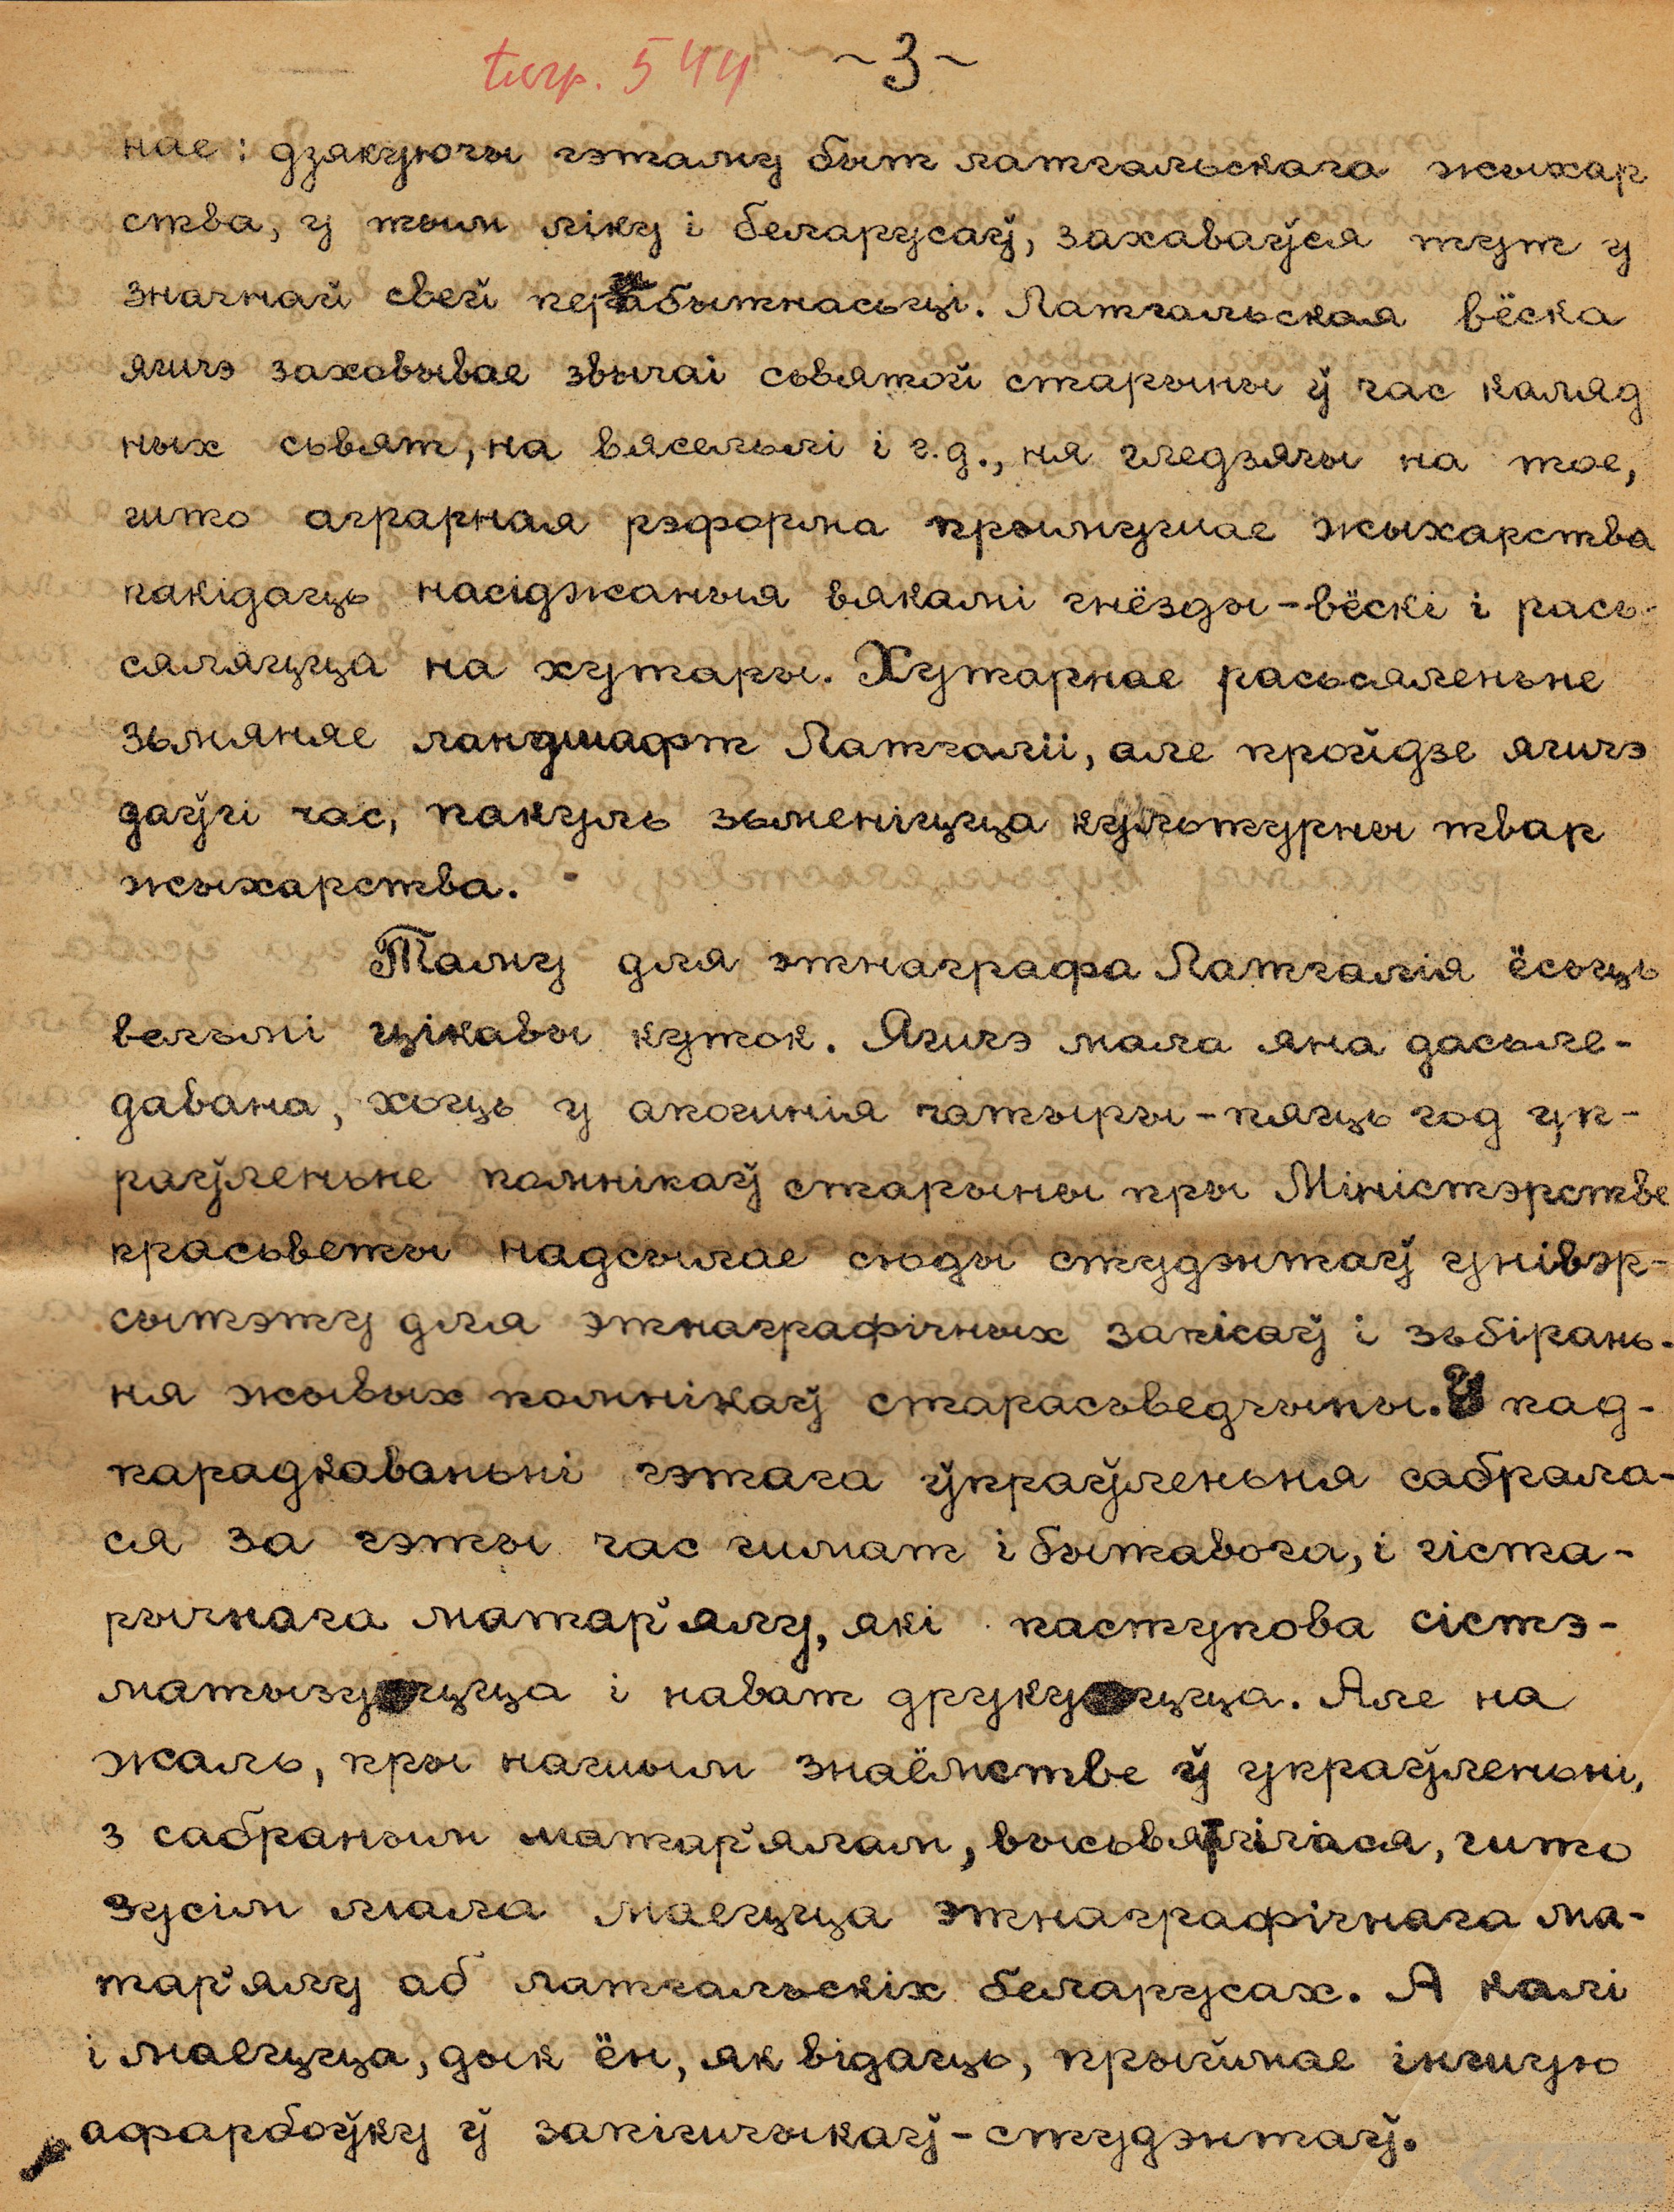 ~3~
нае: дзякуючы гэтаму быт латгальскага жыхар
ства, у тым ліку і беларусаў, захаваўся тут у
значнай свей першабытнасьці. Латгальская вёска
яшчэ захоўвывае звычаі сьвятой старыны ў час каляд
ных сьвят, на вясельлі і г.д., ня гледзячы на тое,
што аграрная рэформа прымушае жыхарства
пакідаць наседжаныя вякамі гнёзды-вёскі і рась-
сяляцца на хутары. Хутарнае расьсяленьне
зьмяняе ландшафт Латгаліі, але пройдзе яшчэ
даўгі час, пакуль зьменіцца культурны твар
жыхарства.
Таму для этнаграфа Латгалія ёсьць
вельмі цікавы куток. Яшчэ мала яна дасьле-
давана, хоць у апошнія чатыры-пяць год уп-
раўленьне помнікаў старыны пры Міністэрстве
прасьветы надсылае сюды студэнтаў унівэр-
сытэту для этнаграфічных запісаў і зьбірань-
ня жывых помнікаў старасьведчыны. У пад-
парадкаваньні гэтага ўпраўленьня сабрала-
ся за гэты час шмат і бытавога, і гіста-
рычнага матар'ялу, які паступова сістэ-
матызуецца і нават друкуецца. Але на
жаль, пры нашым знаёмстве ў упраўленьні,
з сабраным матар'ялам, высьвятлілася, што
зусім мала маецца этнаграфічнага ма-
тар'ялу аб латгальскіх беларусах. А калі
і маецца, дык ён, як відаць, прыймае іншую
афарбоўку ў запішчыкаў-студэнтаў.